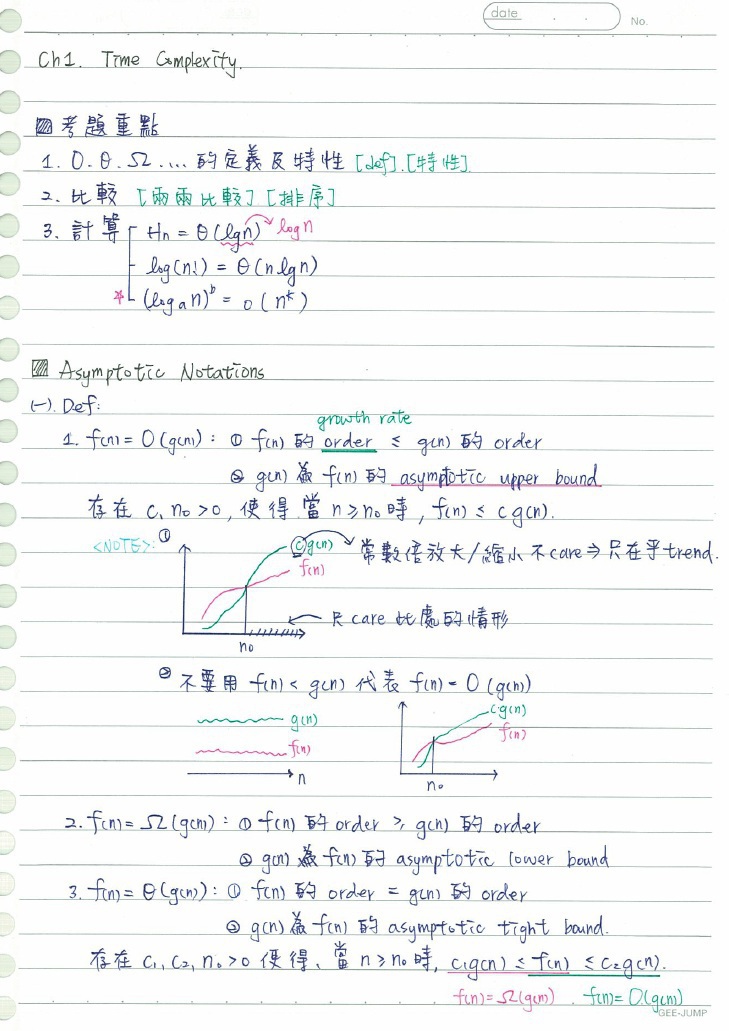 date . . No.
Ch1. Time Complexity.
考題重點
1. O. θ. Ω. ... 的定義及特性 [def]. [特性]
2. 比較 [兩兩比較] [排序]
3. 計算 Hn = θ(lgn) log n
log(n!) = θ(n lg n)
☆ (log a n)^b = o(n^k)
Asymptotic Notations
(一). Def:
growth rate
1. f(n) = O(g(n)) : ① f(n) 的 order ≤ g(n) 的 order
② g(n) 為 f(n) 的 asymptotic upper bound
存在 c, n₀ > 0, 使得 當 n ≥ n₀ 時, f(n) ≤ c g(n).
<NOTE>: ① c g(n) 常數倍放大/縮小 不care ⇒ 只在乎trend.
f(n)
只 care 此處的情形
n₀
② 不要用 f(n) < g(n) 代表 f(n) = O(g(n))
g(n) c·g(n)
f(n) f(n)
n n₀
2. f(n) = Ω(g(n)) : ① f(n) 的 order ≥ g(n) 的 order
② g(n) 為 f(n) 的 asymptotic lower bound
3. f(n) = θ(g(n)) : ① f(n) 的 order = g(n) 的 order
② g(n) 為 f(n) 的 asymptotic tight bound.
存在 c₁, c₂, n₀ > 0 使得、當 n ≥ n₀ 時, c₁g(n) ≤ f(n) ≤ c₂g(n).
f(n) = Ω(g(n)) . f(n) = O(g(n))
GEE-JUMP